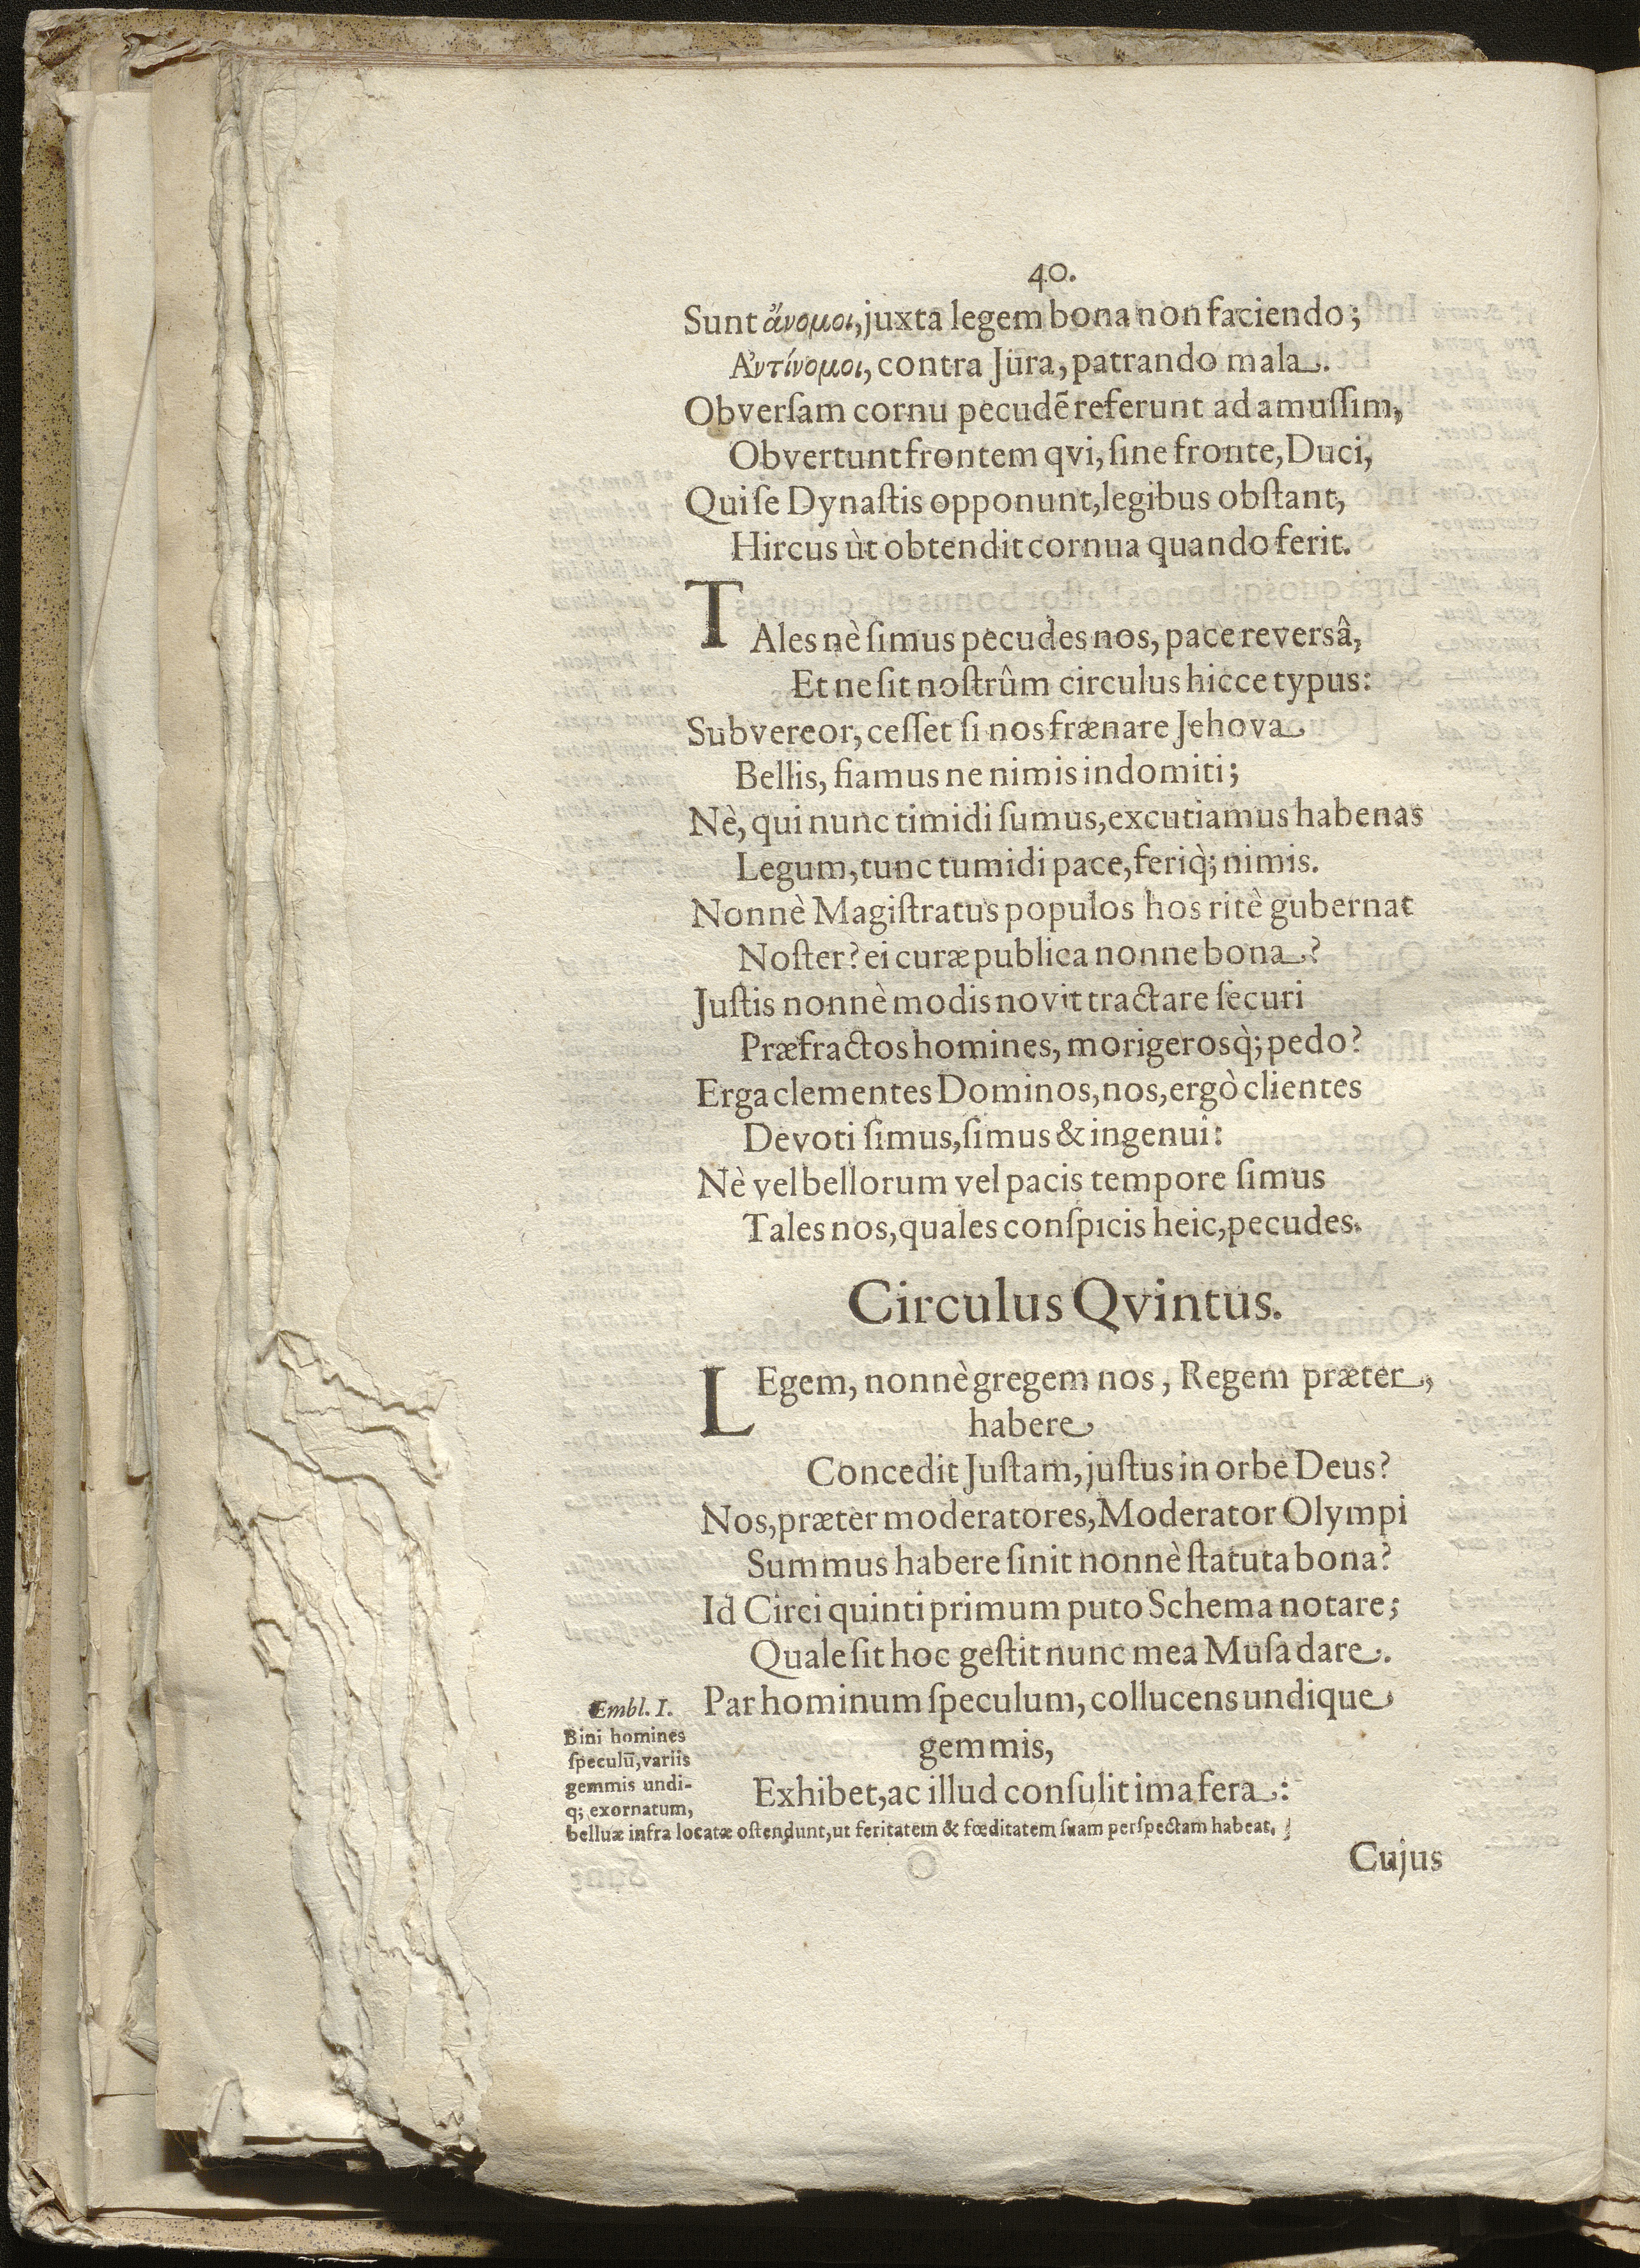 40.
Sunt ἄνομοι, juxta legem bona non faciendo;
Αντίνομοι, contra Jura, patrando mala.
Obverſam cornu pecudē referunt ad amuſſim,
Obvertunt frontem qvi, ſine fronte, Duci,
Qui ſe Dynaſtis opponunt, legibus obſtant,
Hircus ùt obtendit cornua quando ferit.
TAles nè ſimus pecudes nos, pace reversâ,
Et ne ſit noſtrûm circulus hicce typus:
Subvereor, ceſſet ſi nos frænare Jehova
Bellis, fiamus ne nimis indomiti;
Nè, qui nunc timidi ſumus, excutiamus habenas
Legum, tunc tumidi pace, feriq̀; nimis.
Nonnè Magiſtratus populos hos ritè gubernat
Noſter? ei curæ publica nonne bona?
Juſtis nonnè modis novit tractare ſecuri
Præfractos homines, morigerosq̀; pedo?
Erga clementes Dominos, nos, ergò clientes
Devoti ſimus, ſimus & ingenui:
Nè vel bellorum vel pacis tempore ſimus
Tales nos, quales conſpicis heic, pecudes.
Circulus Qvintus.
LEgem, nonnè gregem nos, Regem præter,
habere
Concedit Juſtam, juſtus in orbe Deus?
Nos, præter moderatores, Moderator Olympi
Summus habere ſinit nonnè ſtatuta bona?
Id Circi quinti primum puto Schema notare;
Quale ſit hoc geſtit nunc mea Muſa dare.
Par hominum ſpeculum, collucens undique
gemmis,
Exhibet, ac illud conſulit ima fera:
Embl. I.
Bini homines
ſpeculū, variis
gemmis undi-
q; exornatum,
belluæ infra locatæ oſtendunt, ut feritatem & fœditatem ſuam perſpectam habeat.
Cujus